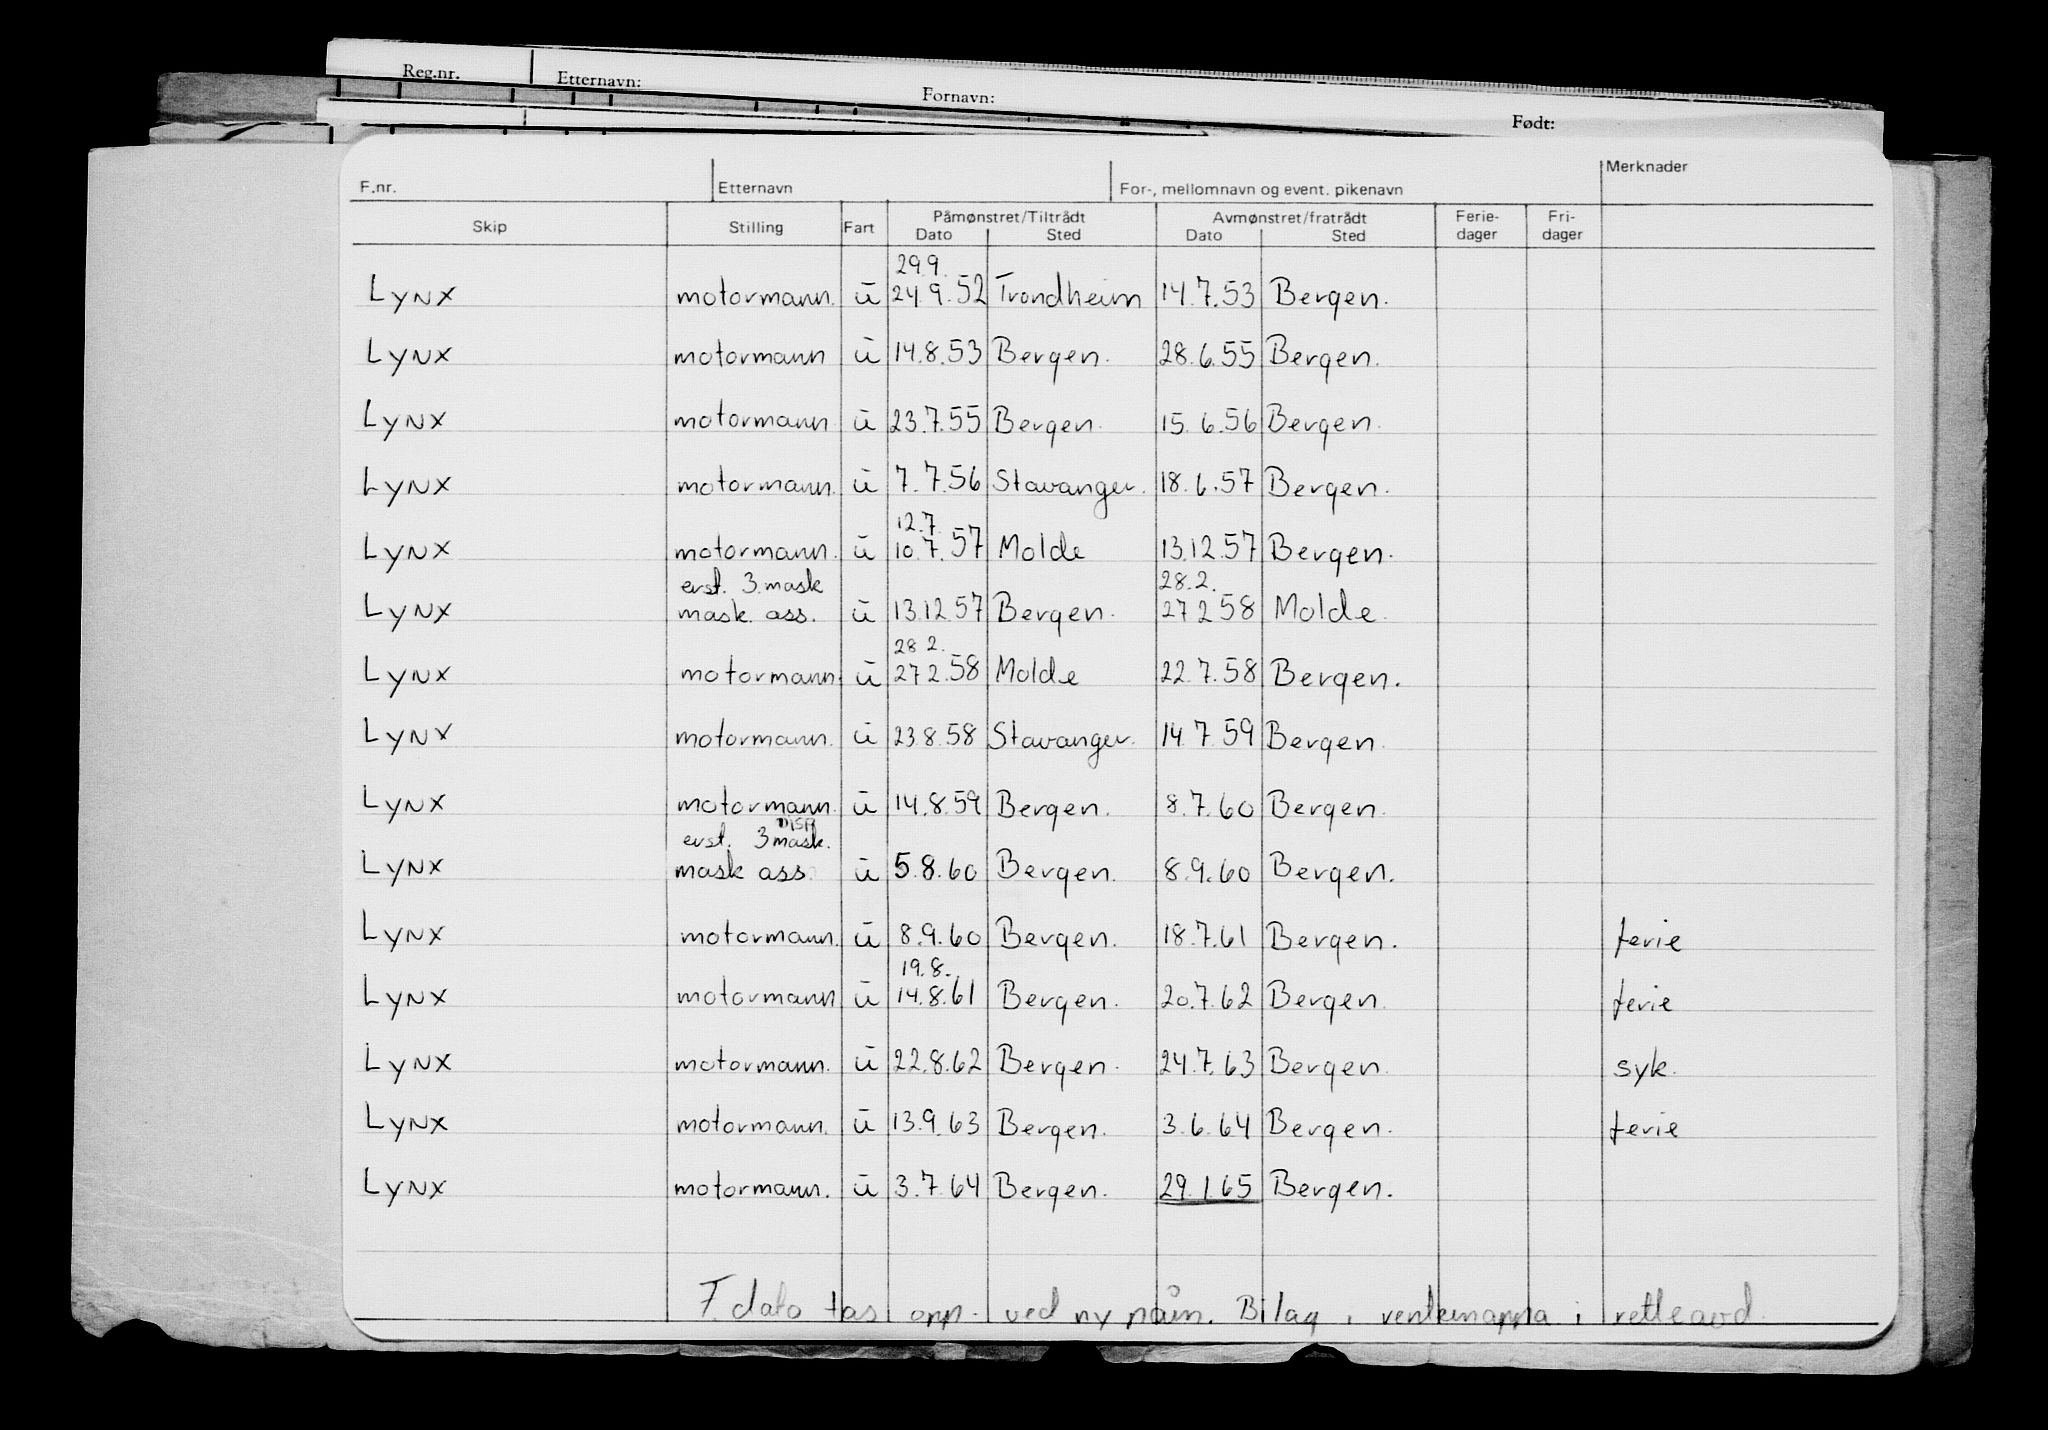 Reg.nr. Etternavn: Fornavn: Født:
F.nr. Etternavn For-, mellomnavn og event. pikenavn Merknader
Skip Stilling Fart Påmønstret/Tiltrådt Avmønstret/fratrådt Ferie- Fri-
Dato Sted Dato Sted dager dager
29.9.
Lynx motormann. u 24.9.52 Trondheim 14.7.53 Bergen.
Lynx motormann u 14.8.53 Bergen. 28.6.55 Bergen.
Lynx motormann u 23.7.55 Bergen. 15.6.56 Bergen.
Lynx motormann. u 7.7.56 Stavanger. 18.6.57 Bergen.
12.7.
Lynx motormann. u 10.7.57 Molde 13.12.57 Bergen.
erst. 3.mask 28.2.
Lynx mask. ass. u 13.12.57 Bergen. 27 2 58 Molde.
28 2.
Lynx motormann. u 27 2.58 Molde 22.7.58 Bergen.
Lynx motormann. u 23.8.58 Stavanger. 14 7 59 Bergen.
Lynx motormann. u 14.8.59 Bergen. 8.7.60 Bergen.
erst. 3 mask.
Lynx mask ass. u 5.8.60 Bergen. 8.9.60 Bergen.
Lynx motormann. u 8.9.60 Bergen. 18.7.61 Bergen. ferie
19.8.
Lynx motormann u 14.8.61 Bergen. 20.7.62 Bergen. ferie
Lynx motormann. u 22.8.62 Bergen. 24.7.63 Bergen. syk.
Lynx motormann. u 13.9.63 Bergen. 3.6.64 Bergen. ferie
Lynx motormann. u 3.7.64 Bergen. 29.1.65 Bergen.
F. dato tas opp. ved ny påm. Bilag i ventemappa i retteavd.